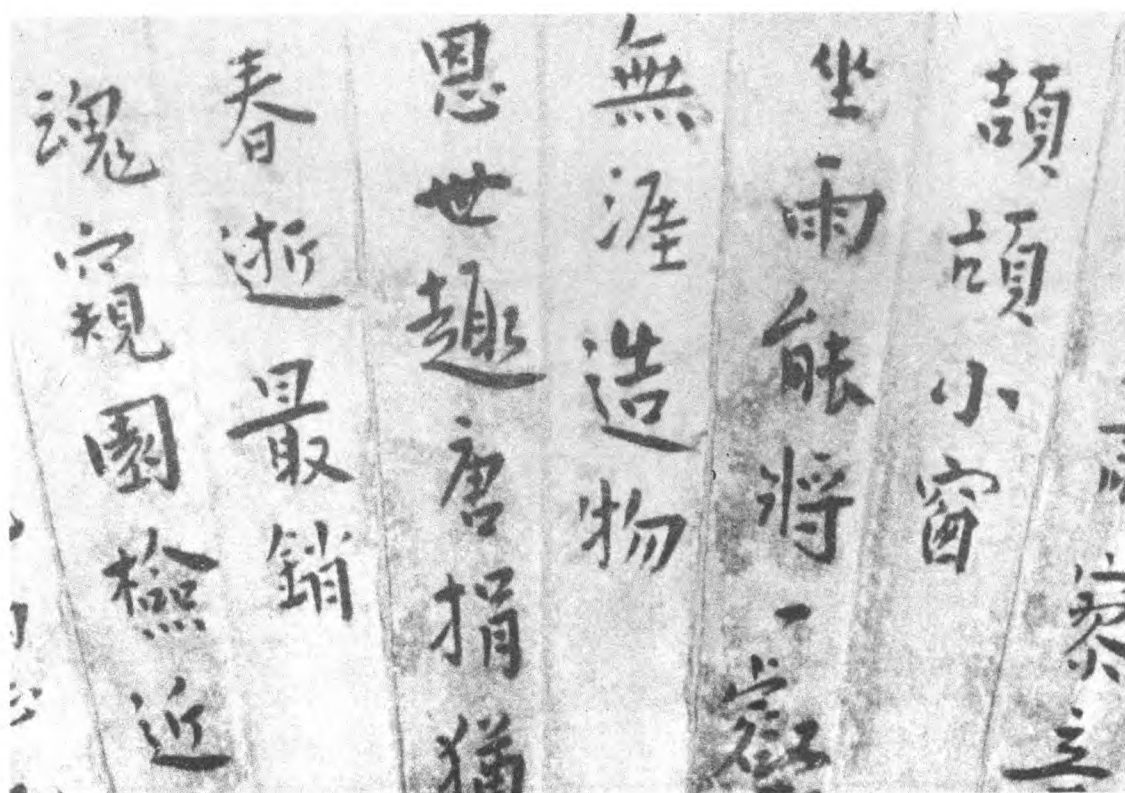 立
頡頡小窗
坐雨能將一
無涯造物
恩世趣唐捐猶
春逝最銷
魂窺園檢近